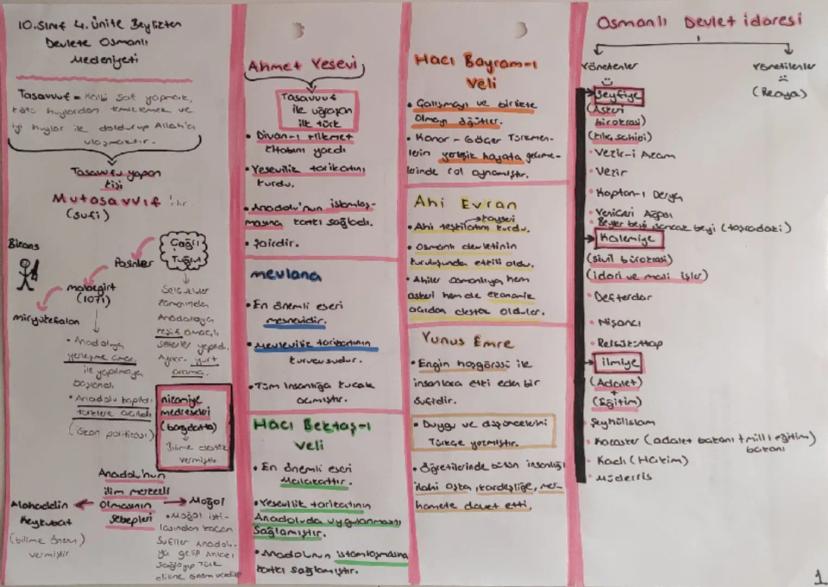 10. Sınıf 4. Ünite Beylikten
Devlete Osmanlı
Medeniyeti
Tasavvuf = Kalbi saf yapmak,
kötü huylardan temizlemek ve
iyi huylar ile doldurup Allah'a
ulaşmaktır.
Tasavvuf yapan
kişi
Mutasavvıf 'tır
(sufi)
Bizans
Çağrı
Tuğrul
Pasinler
malazgirt
(1071)
miryokefalon
• Anadolu
yerleşme amacı
ile yapılmaya
başlandı
• Anadolu kapıları
türklere açıldı
Selçuklular
zamanında
Anadoluya
keşif amaçlı
seferler yapıldı.
Ayrıca yurt
arama.
nizamiye
medreseleri
(bağdatta)
Bilime destek
vermiştir
Anadolu'nun
ilim merkezi
olmasının
sebepleri
Alahaddin
Keykubat
(bilime önem)
vermiştir
Moğol
• Moğol isti-
lasından kaçan
Sufiler Anadolu-
ya gelip
sağlayıp Türk
Ahmet Yesevi
Tasavvuf
ile uğraşan
ilk türk
• Divan-ı Hikmet
kitabını yazdı
• Yesevilik tarikatını
kurdu.
• Anadolu'nun islamlaş-
masına katkı sağladı.
• Şairdir.
mevlana
• En önemli eseri
mesnevidir.
• Mevlevilik tarikatının
kurucusudur.
• Tüm insanlığa kucak
açmıştır.
Hacı Bektaş-ı
Veli
• En önemli eseri
Makalattır.
• Yesevilik tarikatının
Anadoluda uygulanması
Sağlamıştır.
• Anadolunun islamlaşmasına
katkı sağlamıştır.
Hacı Bayram-ı
Veli
• Çalışmayı ve birlikte
olmayı öğütler.
• Konar - Göçer Türkmen-
lerin yerleşik hayata geçme-
lerinde rol oynamıştır.
Ahi Evran
kayseri
• Ahi teşkilatını kurdu.
• Osmanlı devletinin
kuruluşunda etkili oldu.
• Ahiler osmanlıya hem
askeri hem de ekonomik
açıdan destek oldular.
Yunus Emre
• Engin hoşgörüsü ile
insanlara etki eden bir
sufidir.
• Duygu ve düşüncelerini
Türkçe yazmıştır.
• Öğretilerinde bütün insanlığı
ilahi aşka, kardeşliğe, mer-
hamete davet etti,
Osmanlı Devlet idaresi
Yönetenler
Yönetilenler
(Reaya)
Seyfiye
(Askeri
bürokrasi)
(kılıç sahibi)
• Vezir-i Azam
• Vezir
• Kaptan-ı Derya
• Yeniçeri Ağası
• Beyler beyi sancak beyi (taşradaki)
Kalemiye
(sivil bürokrasi)
(idari ve mali işler)
• Defterdar
• Nişancı
• Reisülküttap
ilmiye
(Adalet)
+
(Eğitim)
Şeyhülislam
• Kazasker (adalet bakanı + milli eğitim)
bakanı
• Kadı (Hakim)
• Müderris
1